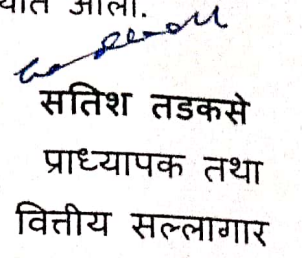 आली.
सतिश तडकसे
प्राध्यापक तथा
वित्तीय सल्लागार